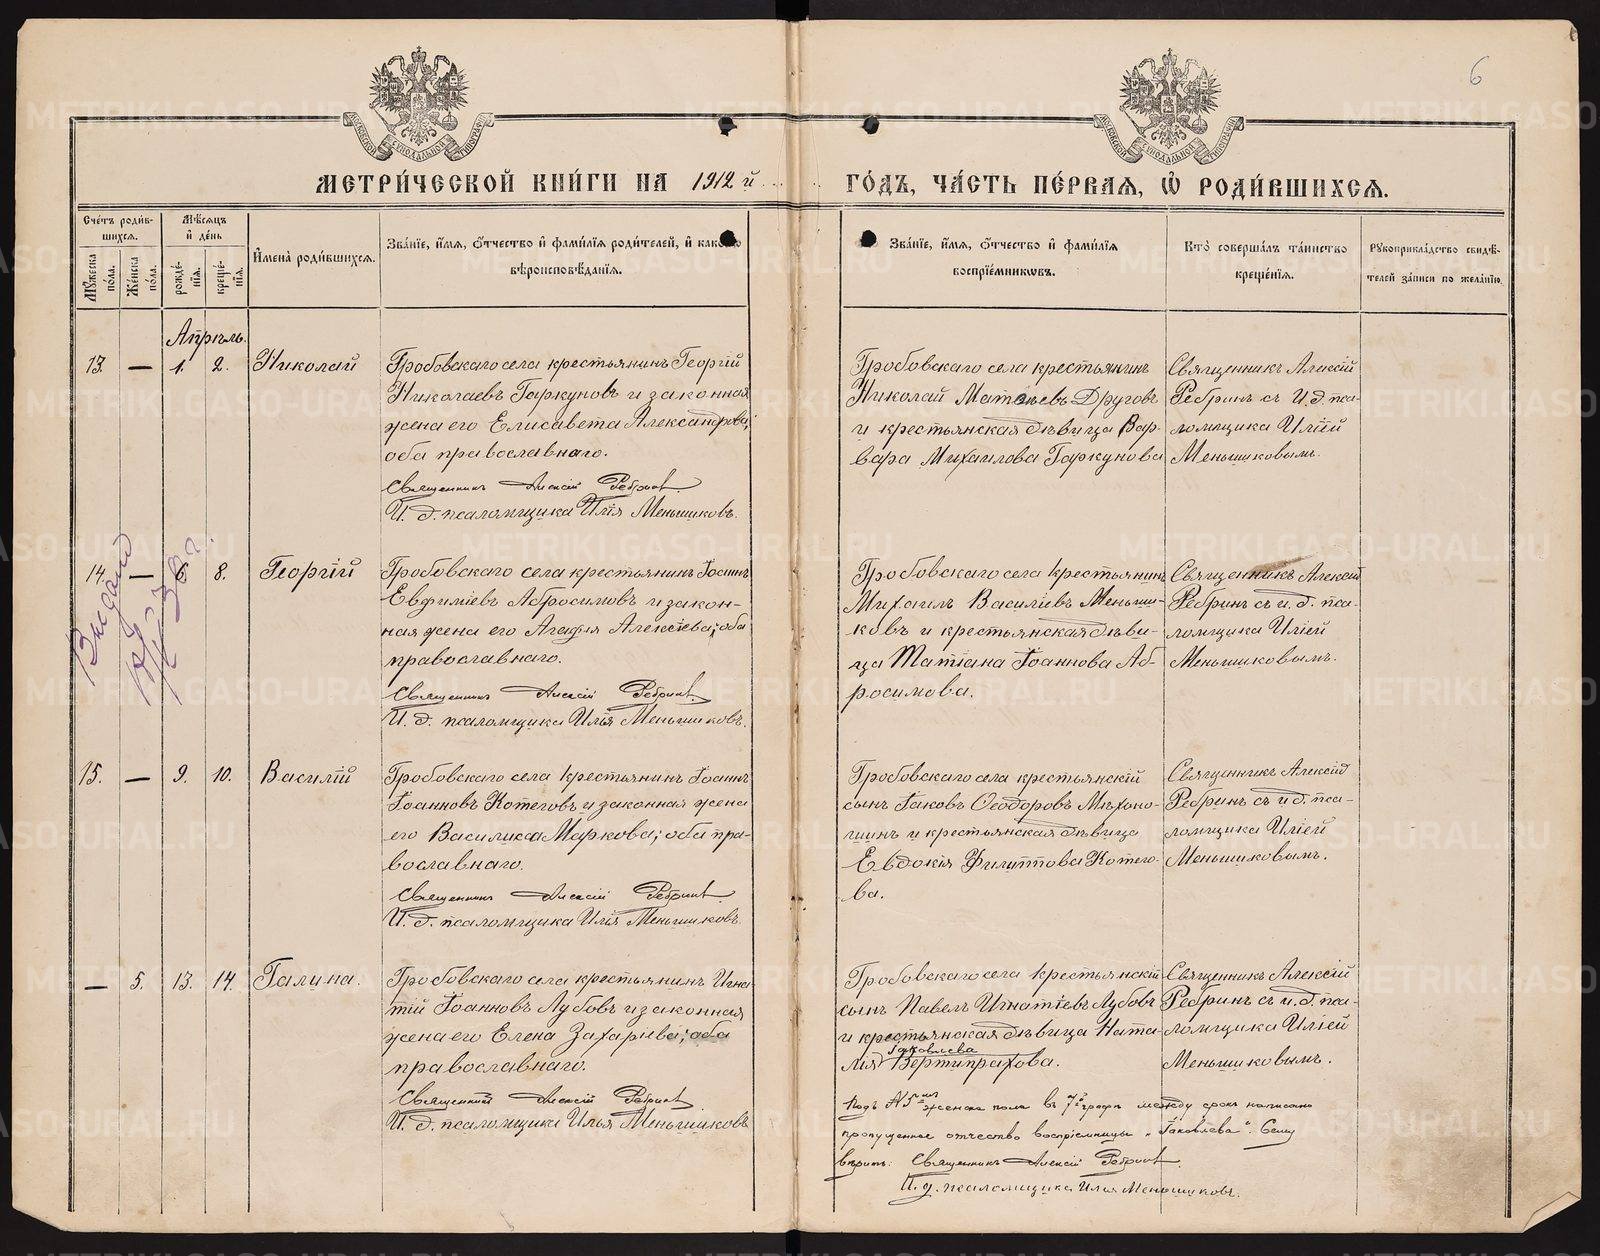 6
МЕТРИ́ЧЕСКОЙ КНИ́ГИ НА 1912 й ГО́ДЪ, ЧА́СТЬ ПЕ́РВАЯ, Ѡ҆ РОДИ́ВШИХСЯ.
Сче́тъ роди́в-
шихся.
Му́жеска по́ла.
Же́нска по́ла.
Мѣ́сяцъ
и҆ де́нь
рожде́-
нїя.
креще́-
нїя.
И҆мена̀ роди́вшихся.
Зва́нїе, и҆́мя, ѻ҆́тчество и҆ фамѝлїя роди́телей, и҆ како́гѡ
вѣроисповѣ́данїя.
Зва́нїе, и҆́мя, ѻ҆́тчество и҆ фамѝлїя
воспрїе́мникѡвъ.
Кто̀ соверша́лъ та́инство
креще́нїя.
Рꙋкоприкла́дство свидѣ́-
телей за́писи по жела́нїю.
Апрѣль.
13. — 1. 2. Николай
Гробовскаго села крестьянинъ Георгій
Николаевъ Гаркуновъ и законная
жена его Елисавета Александрова;
оба православнаго.
Священникъ Алексій Ребринъ.
И. д. псаломщика Илія Меньшиковъ.
Гробовскаго села крестьянинъ
Николай Матѳеевъ Друговъ
и крестьянская дѣвица Вар-
вара Михаилова Гаркунова
Священникъ Алексій
Ребринъ съ И. д. пса-
ломщика Иліей
Меньшиковымъ.
14. — 6. 8. Георгій
Гробовскаго села крестьянинъ Іоаннъ
Евфиміевъ Абросимовъ и закон-
ная жена его Агафія Алексіева; оба
православнаго.
Священникъ Алексій Ребринъ
И. д. псаломщика Илія Меньшиковъ.
Гробовскаго села крестьянинъ
Михаилъ Василіевъ Меньши-
ковъ и крестьянская дѣви-
ца Татіана Іоаннова Аб-
росимова.
Священникъ Алексій
Ребринъ съ и. д. пса-
ломщика Иліей
Меньшиковымъ.
15. — 9. 10. Василій
Гробовскаго села крестьянинъ Іоаннъ
Іоанновъ Котеговъ и законная жена
его Василиса Маркова; оба пра-
вославнаго.
Священникъ Алексій Ребринъ
И. д. псаломщика Илія Меньшиковъ.
Гробовскаго села крестьянскій
сынъ Іаковъ Ѳеодоровъ Мѣхоно-
шинъ и крестьянская дѣвица
Евдокія Филиппова Котего-
ва.
Священникъ Алексій
Ребринъ съ и. д. пса-
ломщика Иліей
Меньшиковымъ.
— 5. 13. 14. Галина.
Гробовскаго села крестьянинъ Игна-
тій Іоанновъ Лубовъ и законная
жена его Елена Захаріева; оба
православнаго.
Священникъ Алексій Ребринъ
И. д. псаломщика Илья Меньшиковъ
Гробовскаго села крестьянскій
сынъ Павелъ Игнатіевъ Лубовъ
и крестьянская дѣвица Ната-
Іаковлева
лія Вертипрахова.
Священникъ Алексій
Ребринъ съ и. д. пса-
ломщика Иліей
Меньшиковымъ.
Подъ №5мъ женска пола въ 7й графѣ между срокъ написано
пропущенное отчество воспріемницы „Іаковлева“. Сему
вѣрить. Священникъ Алексій Ребринъ.
И. д. псаломщика Илья Меньшиковъ.